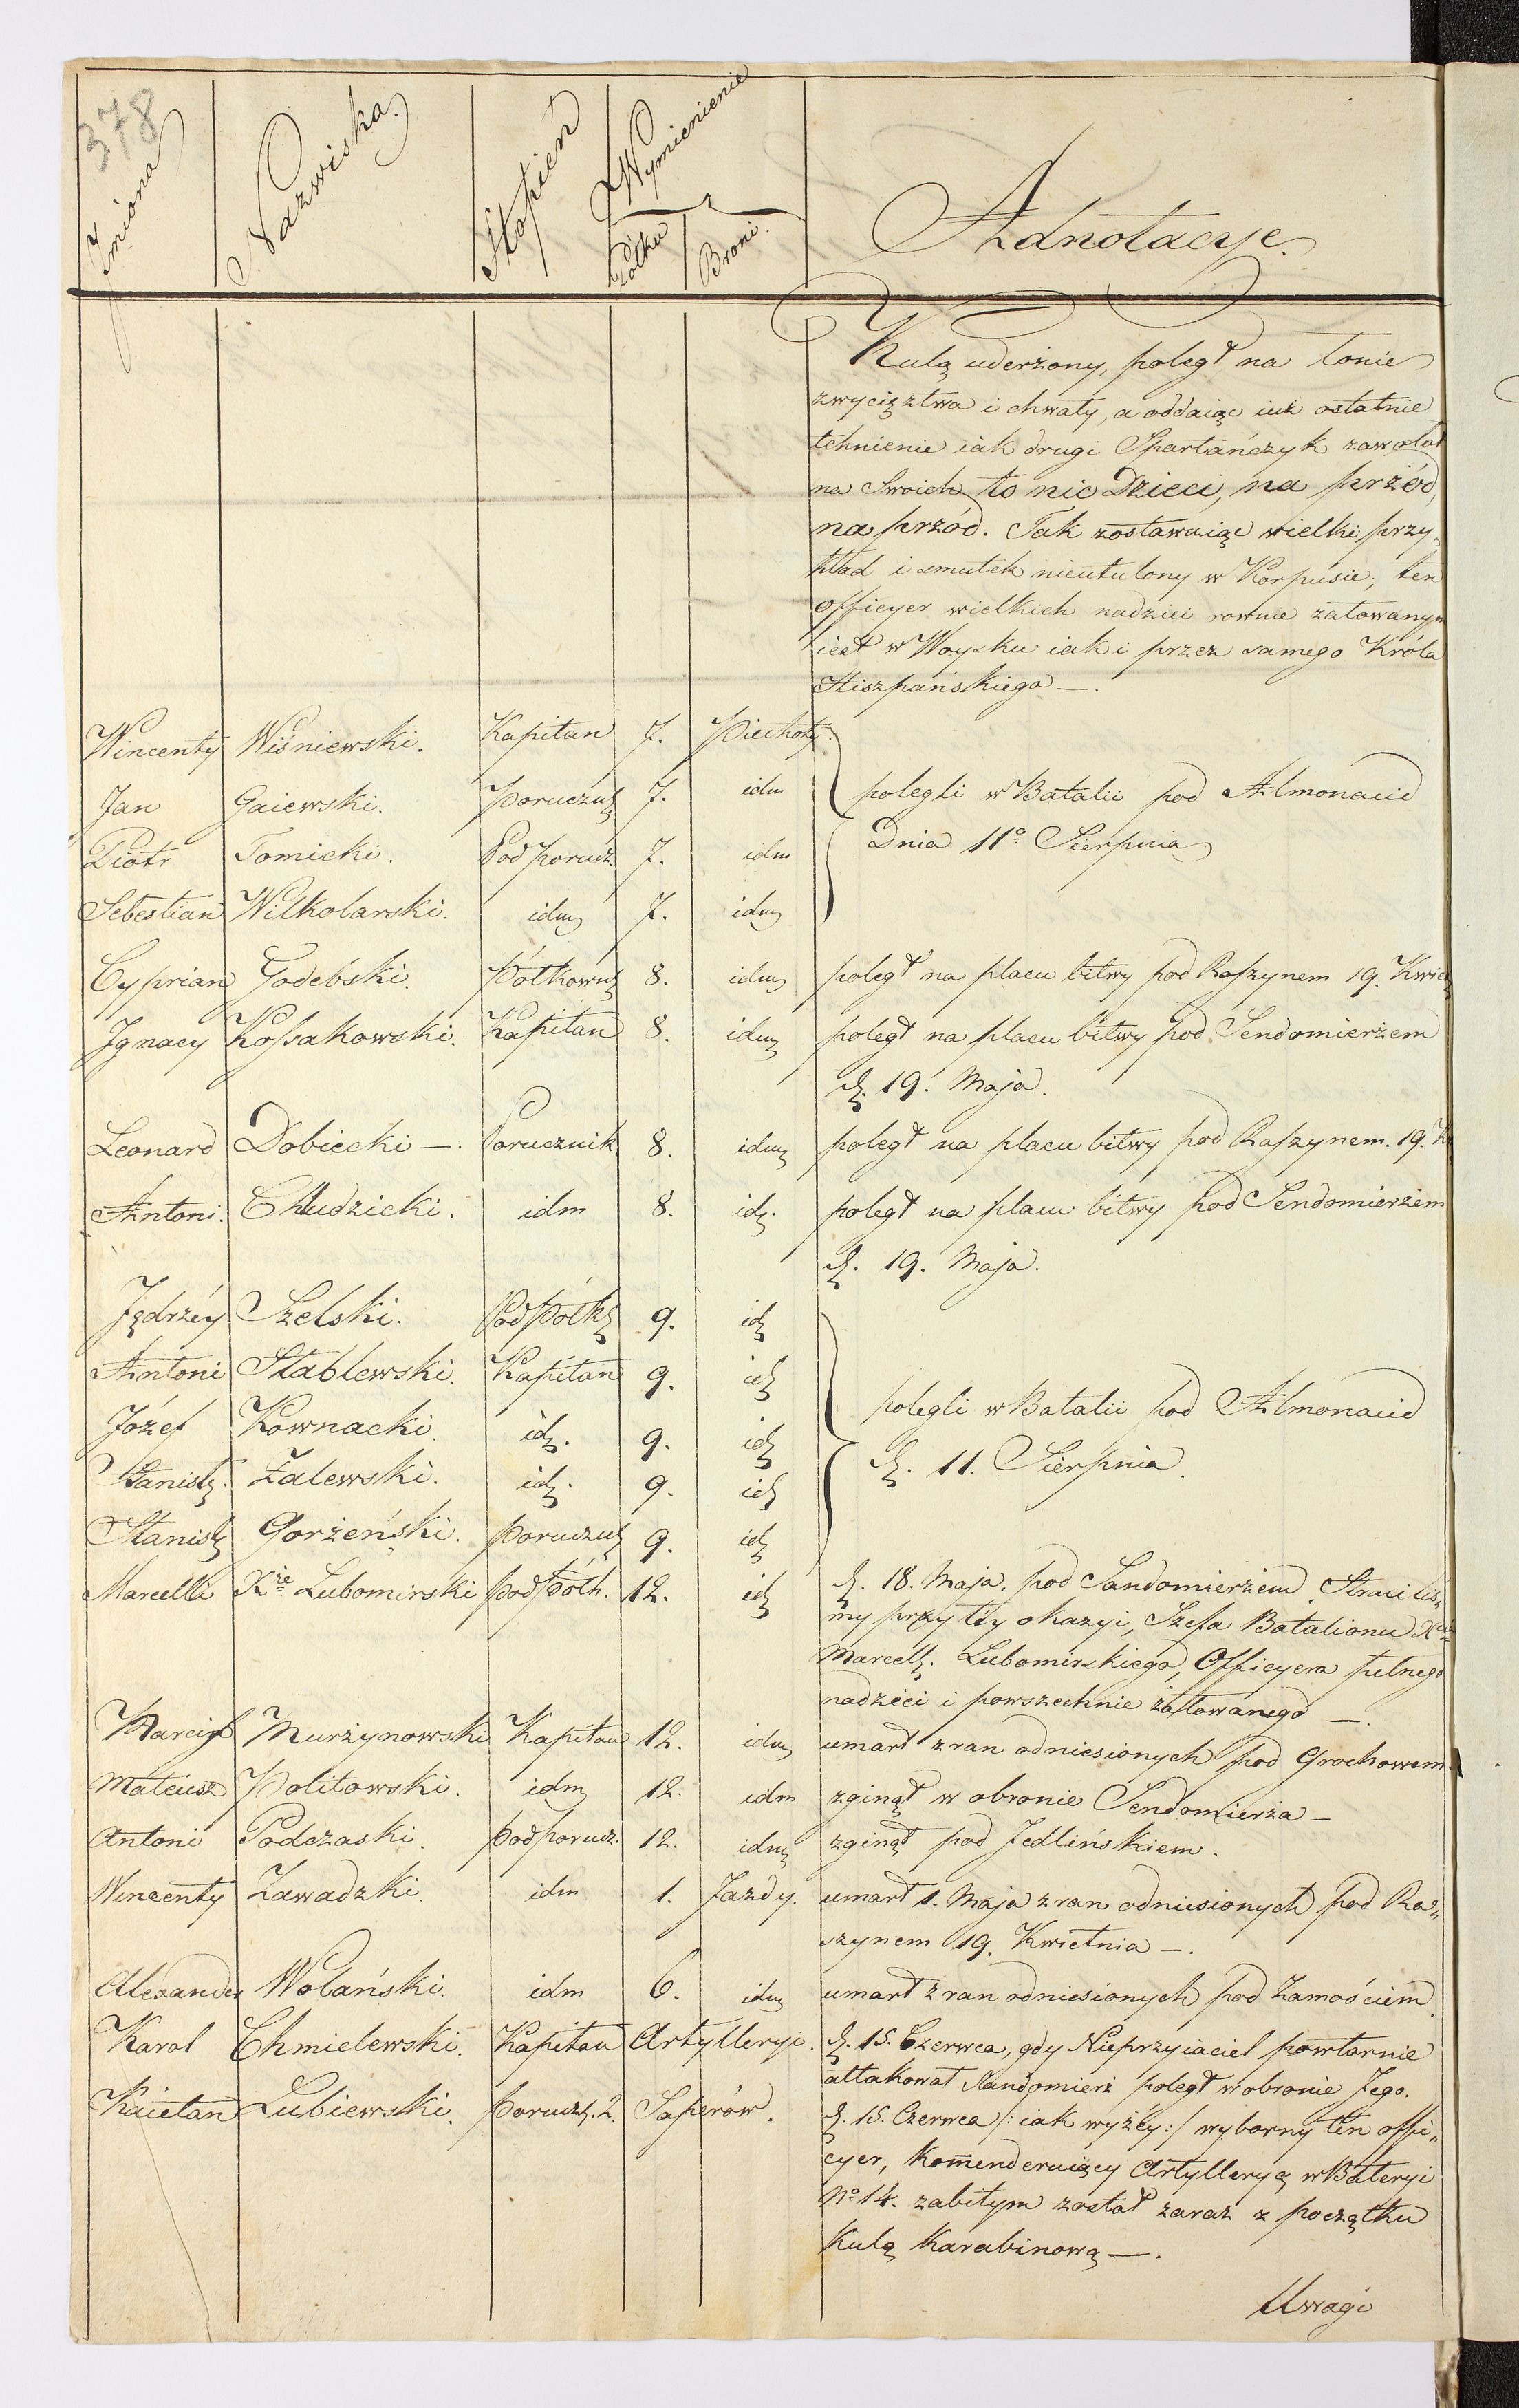 378
Imiona Nazwiska. Stopień Wymienienie
Półku Broni.
Adnotacye.
Kulą uderżony, poległ na łonie
zwyciąztwa i chwały, a oddaiąc iuż ostatnie
tchnienie iak drugi Spartańczyk zawołał
na Swoich to nic Dzieci, na przód,
na przód. Tak zostawuiąc wielki przy„
kład i smutek nieutulony w Korpusie; ten
officyer wielkich nadziei rownie żałowanym
iest w Woysku iak i przez samego Króla
Hiszpańskiego —.
Wincenty Wiśniewski. Kapitan 7. Piechoty.
Jan Gaiewski. Porucz 7. idm polegli w Batalii pod Almonacid
Piotr Tomicki. Podporucz. 7. idm Dnia 11o Sierpnia
Sebestian Wilkolarski. idm 7. idm
Cyprian Godebski. Półkown 8. idm poległ na placu bitwy pod Raszynem 19. Kwiet
Ignacy Kossakowski. Kapitan 8. idm poległ na placu bitwy pod Sendomierżem
d. 19. Maja.
Leonard Dobiecki —. Porucznik 8. idm poległ na placu bitwy pod Raszynem. 19. K
Antoni. Chudzicki. idm 8. id. poległ na placu bitwy pod Sendomierżem
d. 19. Maja.
Jędrzéy Szelski. Podpółk 9. id
Antoni Stablewski. Kapitan 9. id
Józef Kownacki. id. 9. id polegli w Batalii pod Almonacid
Stanisł. Zalewski. id. 9. id d. 11. Sierpnia.
Stanisł Gorżeński. Porucz 9. id
Marcelli Xże Lubomirski podpółk. 12. id d. 18. Maja. pod Sandomierżem Straciliś„
my przy téy okazyi, Szefa Batalionu Xcia
Marcell. Lubomirskiego, Officyera pełnego
nadziei i powszechnie żałowanego —.
Murżynowski Kapitan 12. idm umarł z ran odniesionych pod Grochowem
Mateusz Politowski. idm 12. idm zginął w obronie Sendomierża —
Antoni Podczaski. Podporucz. 12. idm zginął pod Jedlińskiem.
Wincenty Zawadzki. idm 1. Jazdy. umarł 1. Maja z ran odniesionych pod Ra„
szynem 19. Kwietnia —.
Alexander Wolański. idm 6. idm umarł z ran odniesionych pod Zamościem
Karol Chmielewski. Kapitan Artylleryi. d. 15. Czerwca, gdy Nieprzyiaciel powtornie
attakował Sandomierż poległ w obronie Jego.
Kaietan Lubiewski. Porucz. 2. Saperów. d. 15. Czerwca /: iak wyżéy :/ wyborny ten offi„
cyer, Kommenderuiący Artylleryą w Bateryi
No 14. zabitym został zaraz z początku
Kulą Karabinową —.
Uwagi